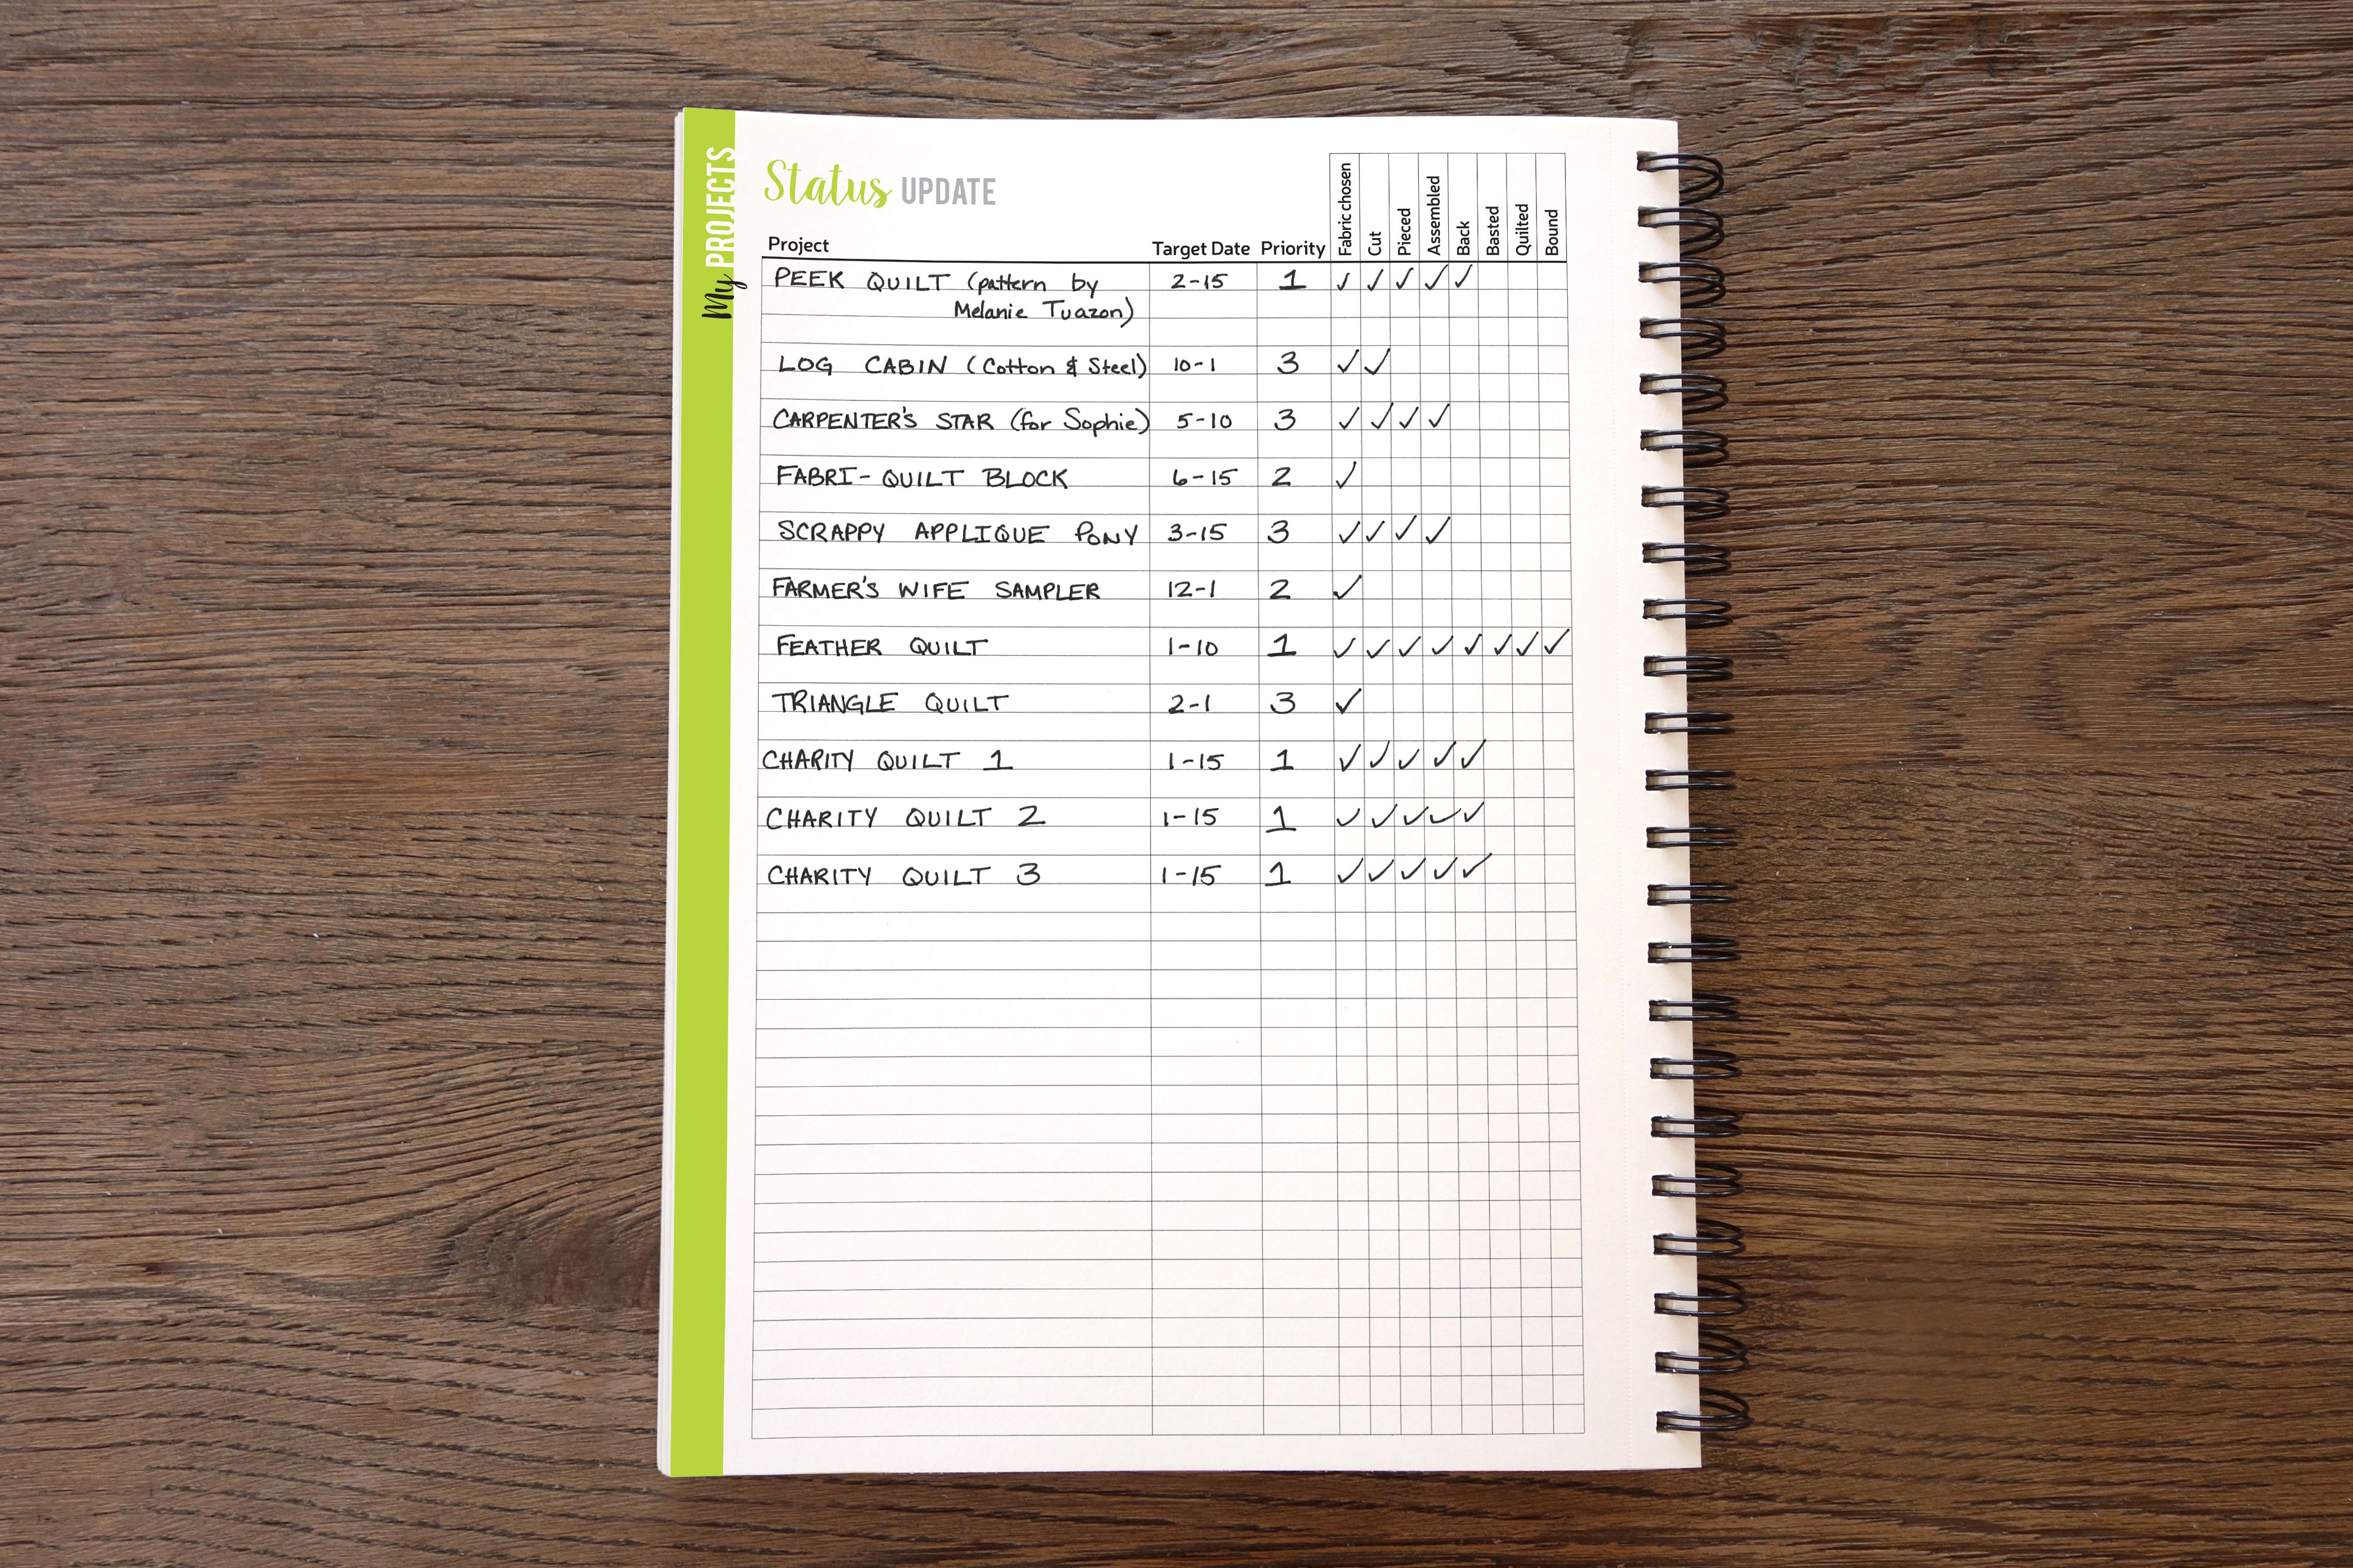 My PROJECTS
Status UPDATE
Project Target Date Priority Fabric chosen Cut Pieced Assembled Back Basted Quilted Bound
PEEK QUILT (pattern by 2-15 1 ✓ ✓ ✓ ✓ ✓
Melanie Tuazon)
LOG CABIN (Cotton & Steel) 10-1 3 ✓ ✓
CARPENTER'S STAR (for Sophie) 5-10 3 ✓ ✓ ✓ ✓
FABRI-QUILT BLOCK 6-15 2 ✓
SCRAPPY APPLIQUE PONY 3-15 3 ✓ ✓ ✓ ✓
FARMER'S WIFE SAMPLER 12-1 2 ✓
FEATHER QUILT 1-10 1 ✓ ✓ ✓ ✓ ✓ ✓ ✓ ✓
TRIANGLE QUILT 2-1 3 ✓
CHARITY QUILT 1 1-15 1 ✓ ✓ ✓ ✓ ✓
CHARITY QUILT 2 1-15 1 ✓ ✓ ✓ ✓ ✓
CHARITY QUILT 3 1-15 1 ✓ ✓ ✓ ✓ ✓